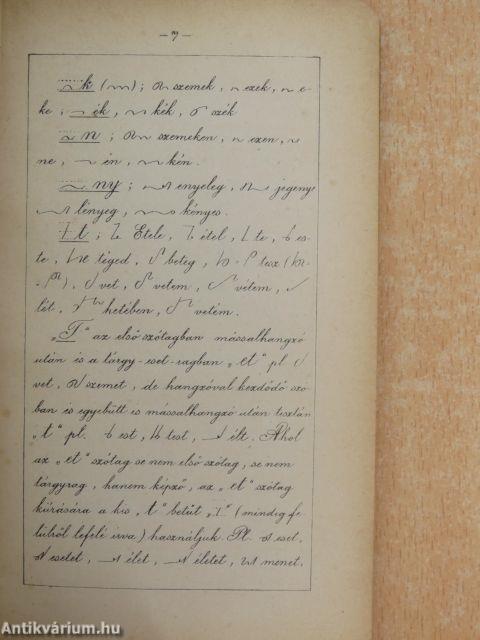 - 7 -
k ( ); szemek, ezek, e-
ke; ék, kék, szék
n; szemeken, ezen,
ne, én, kén.
ny; enyeleg, jegenye
lényeg, kényes.
t; Etele, étel, te, es-
te, téged, beteg, tesz (
), vet, vetem, vétem,
lét, hetében, vetém.
„T" az első szótagban mássalhangzó
után is a tárgy-eset-ragban „et" pl
vet, szemet, de hangzóval kezdődő szó-
ban is egyebütt is mássalhangzó után tisztán
„t" pl. est, test, élt. Ahol
az „et" szótag se nem első szótag, se nem
tárgyrag, hanem képző, az „et" szótag
kiírására a kis „t" betűt „ " (mindig fe-
lülről lefelé írva) használjuk. Pl. eset,
esetet, élet, életet, menet.
Antikvárium.hu